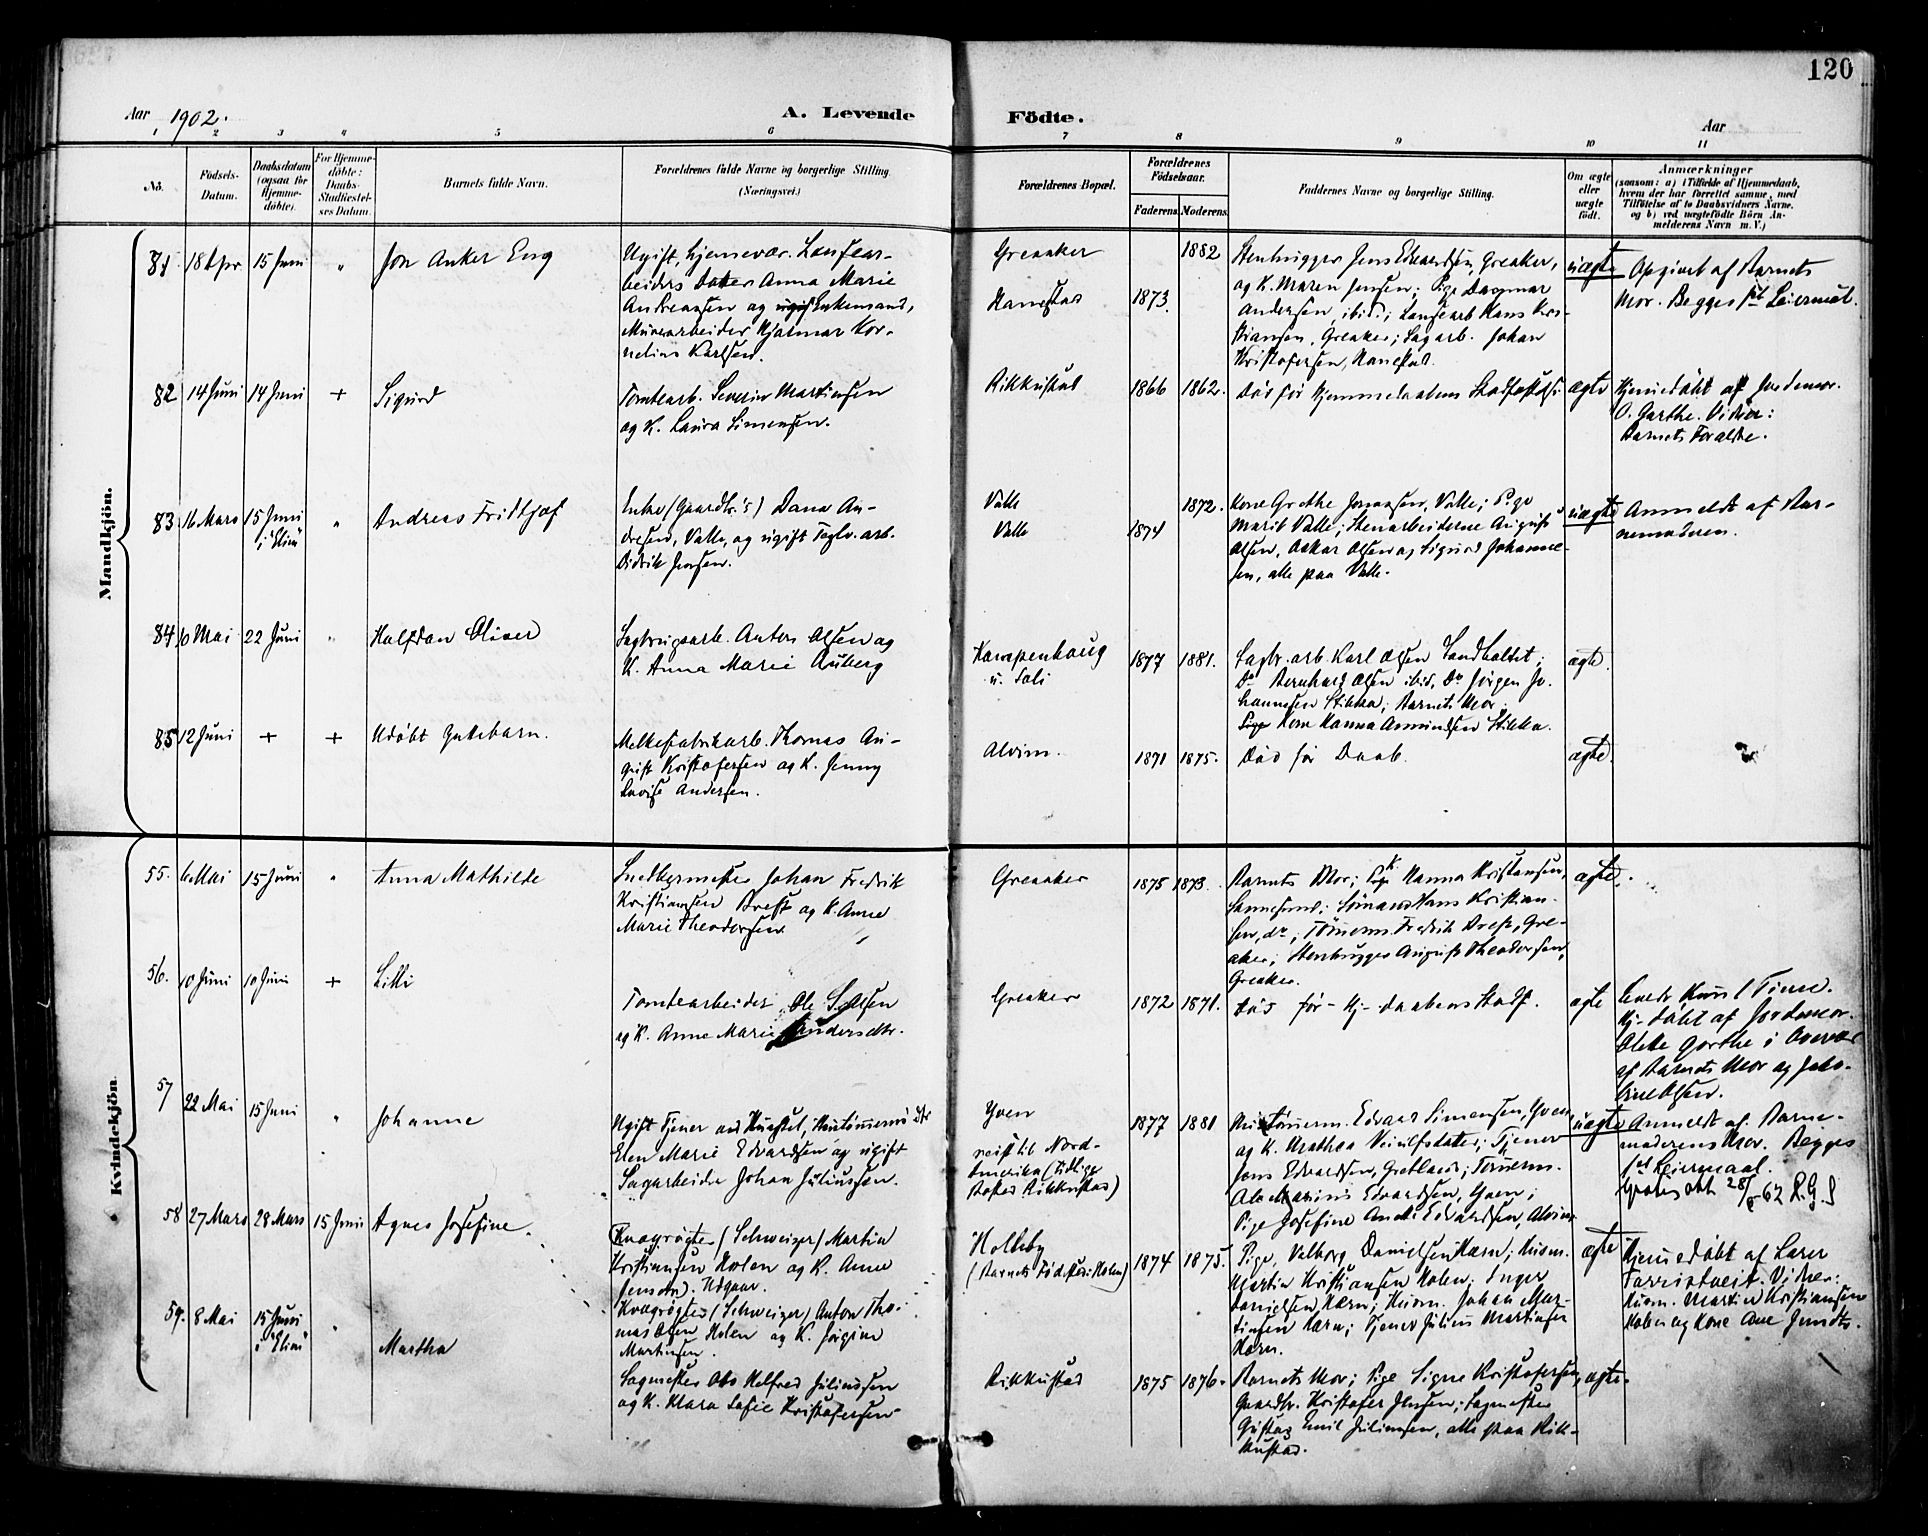 120
Aar 1902.
A. Levende
Födte.
Aar
1 2 3 4 5 6 7 8 9 10 11
No.
Födsels-
Datum.
Daabsdatum
(ogsaa for
Hjemme-
døbte).
For Hjemme-
døbte:
Daabs-
Stadfæstel-
ses Datum.
Barnets fulde Navn.
Forældrenes fulde Navne og borgerlige Stilling.
(Næringsvei.)
Forældrenes Bopæl.
Forældrenes
Fødselsaar.
Faderens.
Moderens.
Faddernes Navne og borgerlige Stilling.
Om ægte
eller
uægte
født.
Anmærkninger
(saasom: a) i Tilfælde af Hjemmedaab,
hvem der har forrettet samme, med
Tilføielse af to Daabsvidners Navne,
og b) ved uægtefødte Børn An-
melderens Navn m. V.)
Mandkjön.
81 18 Apr 15 Juni " Jon Anker Eng
Ugift, hjemmevær.
beiders Datter Anna Marie
Andreassen og Enkemand,
Murarbeider Hjalmar Kor-
nelius Karlsen.
Greaaker
Hanestad
1873. 1882
Stenhugger Jens Edvardsen, Greaker,
og K. Maren Jensen; Pige Dagmar
Andersen, ibid.; Hans Kris-
tiansen, Greaker; Sagarb. Johan
Kristofersen, Hanestad.
uægte
Opgivet af Barnets
Mor. Begges 1st Leiermål.
82 14 Juni 14 Juni + Sigurd
Tomtearb. Severin Martinsen
og K. Laura Simensen.
Rikkustad 1866 1862.
Død før Hjemmedaabens Stadfæstelse
ægte
Hjemmedøbt af Jordemor
O. Garthe. Vidner:
Barnets Forældre.
83. 16 Mars 15 Juni
i "Elim"
" Andreas Fridtjof
Enke (Gaardbr.'s) Dana An-
dresen, Valle, og ugift Teglv. arb.
Didrik Jensen.
Valle
Valle
1874 1872.
Kone Grethe Jonassen, Valle; Pige
Marit Valle; Stenarbeiderne August
Olsen, Oskar Olsen og Sigurd Johanne-
sen, alle paa Valle.
uægte
Anmeldt af Bar-
nemoderen.
84 10 Mai 22 Juni " Halfdan Oliver
Sagbrugsarb. Anton Olsen og
K. Anna Marie Auberg
Kampenhaug
u. Soli
1877 1881.
Sagbr. arb. Karl Olsen Sandbaltet;
Do Bernhard Olsen ibid, Do Jørgen Jo-
hannesen Stikka; Barnets Mor;
Pige Kone Hanna Amundsen Stikka.
ægte.
85 12 Juni + + Udøbt Guttebarn.
Melkefabrikarb. Thomas Au-
gust Kristofersen og K. Jenny
Lovise Andersen.
Alvim. 1871 1875.
Død før Daab.
ægte.
Kvindekjön
55. 6 Mai 15 Juni " Anna Mathilde
Snedkermester Johan Fredrik
Kristiansen Brest og K. Anne
Marie Theodorsen
Greaaker 1875 1873.
Barnets Mor; Pige K. Hanna Kristiansen,
Sannesund; Sømand Hans Kristian-
sen, do; Tømerm. Fredrik Brest, Gre-
aker; Stenhugger August Theodorsen,
Greaker.
ægte.
56. 10 Juni 10 Juni + Lilli
Tomtearbeider Ole S. Olsen
og K. Anne Marie Andersdtr.
Greaker 1872 1871.
død før Hj-daabens Stadf.
ægte
levede kun 1 Time.
Hj-døbt af Jordemor
Olette Garthe i Overvær
af Barnets Mor og Jako-
bine Olsen.
57 22 Mai 15 Juni " Johanne
Ugift Tjener Hustømermds dtr
Elen Marie Edvardsen og ugift
Sagarbeider Johan Juliussen.
Yven
reist til Nord-
Amerika (tidligere
Bosted Rikkustad)
1877 1881
Hustømerm. Edvard Simensen, Yven
og K. Mathea Veiulfsdatter; Tjener
Jens Edvardsen, Gretland; Tømerm.
Ole Marius Edvardsen, Yven;
Pige Josefine Edvardsen, Alvim
uægte
Anmeldt af Barne-
moderens Mor. Begges
1st Leiermaal.
28/8-62 R.G.S
58 27 Mars 28 Mars 15 Juni Agnes Josefine.
Kvægrøgter (Schweizer) Martin
Kristiansen Holen og K. Anne
Jensdtr. Udgaar.
Kvægrøgter (Schweizer) Anton Tho-
mas Olsen Holen og K. Jørgine
Martinsen.
Holleby
(Barnets Fødested: Holen)
1874 1875.
Pige Valborg Danielsen Kærn; Husm.
Martin Kristiansen Holen; Inger
Danielsen Kærn; Husm. Johan Mar-
tinsen Kærn; Tjener Julius Martinsen
Kærn.
ægte
Hjemmedøbt af Lærer
Torristveit. Vidner:
Husm. Martin Kristiansen
Holen og Kone Ane Jensdtr.
59. 8 Mai 15 Juni
i "Elim"
" Martha
Sagmester Otto Helfred Juliussen
og K. Klara Sofie Kristofersen
Rikkustad 1875 1876.
Barnets Mor; Pige Signe Kristofersen,
Gaardbr. Kristofer Jensen; Sagmester
Gustav Emil Juliussen, alle paa Rik-
kustad.
ægte.